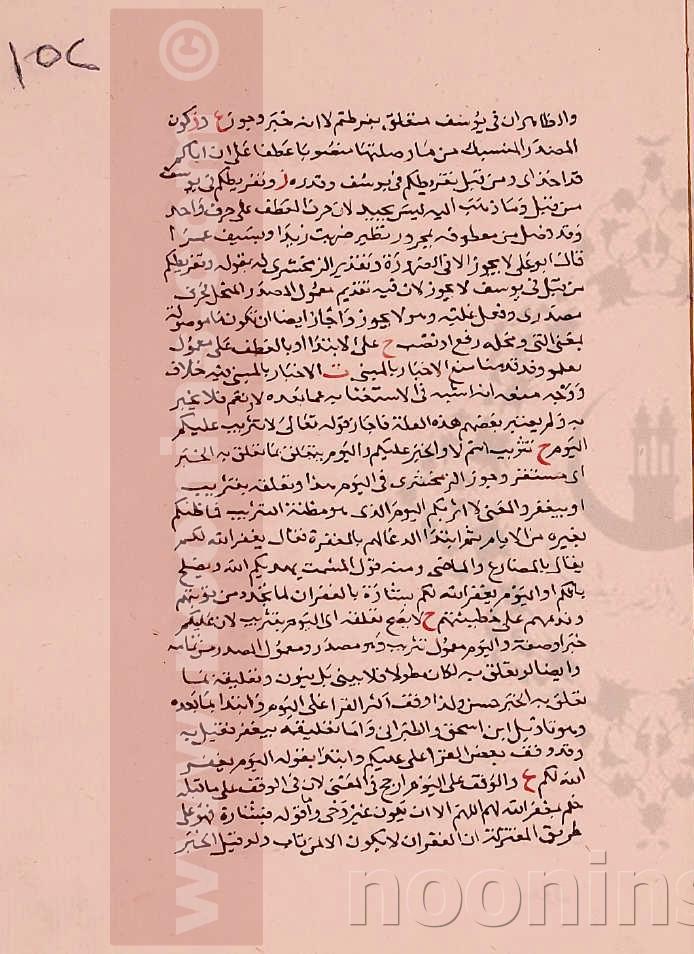 ١٥٢
والظاهر ان فى يوسف متعلق بفرطتم لا انه خبر وجوز ع وز كون
المصدر المنسبك من ما وصلتها منصوبا عطفا على ان اباكم
قد اخذ اى ومن قبل تفريطكم فى يوسف وقدره ز وتفريطكم فى يوسف
من قبل وما ذهب اليه ليس بجيد لان حرف العطف على حرف واحد
وقد فصل بين معطوفه بمجرور نظير ضربت زيدا وبسيف عمرا
قال ابو على لا يجوز الا فى الضرورة وتقدير الزمخشرى له بقوله وتفريطكم
من قبل فى يوسف لا يجوز لان فيه تقديم معمول المصدر المنحل لحرف
مصدرى وفعل عليه وهو لا يجوز واجاز ايضا ان تكون ما موصولة
بمعنى التى ومحله رفع او نصب ح على الابتدا او بالعطف على معمول
تعلموا وقد تقدمنا منع الاخبار بالمبنى ت الاخبار بالمبنى فيه خلاف
ووجه منعه انه اشبه فى الاستغنا به عما بعده لا نعم فلا يخبر
به ولم يعتبر بعضهم هذه العلة فاجاز قوله تعالى لا تثريب عليكم
اليوم ح تثريب اسم لا والخبر عليكم واليوم يتعلق بما تعلق به الخبر
اى مستقر وجوز الزمخشرى فى اليوم هذا وتعلقه بتثريب
او بيغفر والمعنى لا اثربكم اليوم الذى هو مظنة التثريب فما ظنكم
بغيره من الايام ثم ابتدا الدعا لهم بالمغفرة فقال يغفر الله لكم
يقال بالمضارع والماضى ومنه قول المشمت يهديكم الله ويصلح
بالكم او اليوم يغفر الله لكم بشارة بالغفران لما تجدد من توبتهم
وندمهم على خطيئتهم ح لا يصح تعلقه اى اليوم بتثريب لان عليكم
خبر او صفة واليوم معمول تثريب وهو مصدر ومعمول المصدر من تمامه
وايضا لو تعلق به لكان مطولا فلا يبنى بل ينون وتعليقه بما
تعلق به الخبر حسن ولذا وقف اكثر القرا على اليوم وابتدا بما بعده
وهو تاويل ابن اسحق والطبرانى واما تعليقه بيغفر فقيل به
وقد وقف بعض القرا على عليكم وابتدا بقوله اليوم يغفر
الله لكم ع والوقف على اليوم ارجح فى المعنى لان فى الوقف على ما قبله
حكم بمغفرة الله لهم اللهم الا ان يكون عن وحى واما قوله فبشارة فهو على
طريق المعتزلة ان الغفران لا يكون الا لمن تاب ولو قيل الخبر
noonins